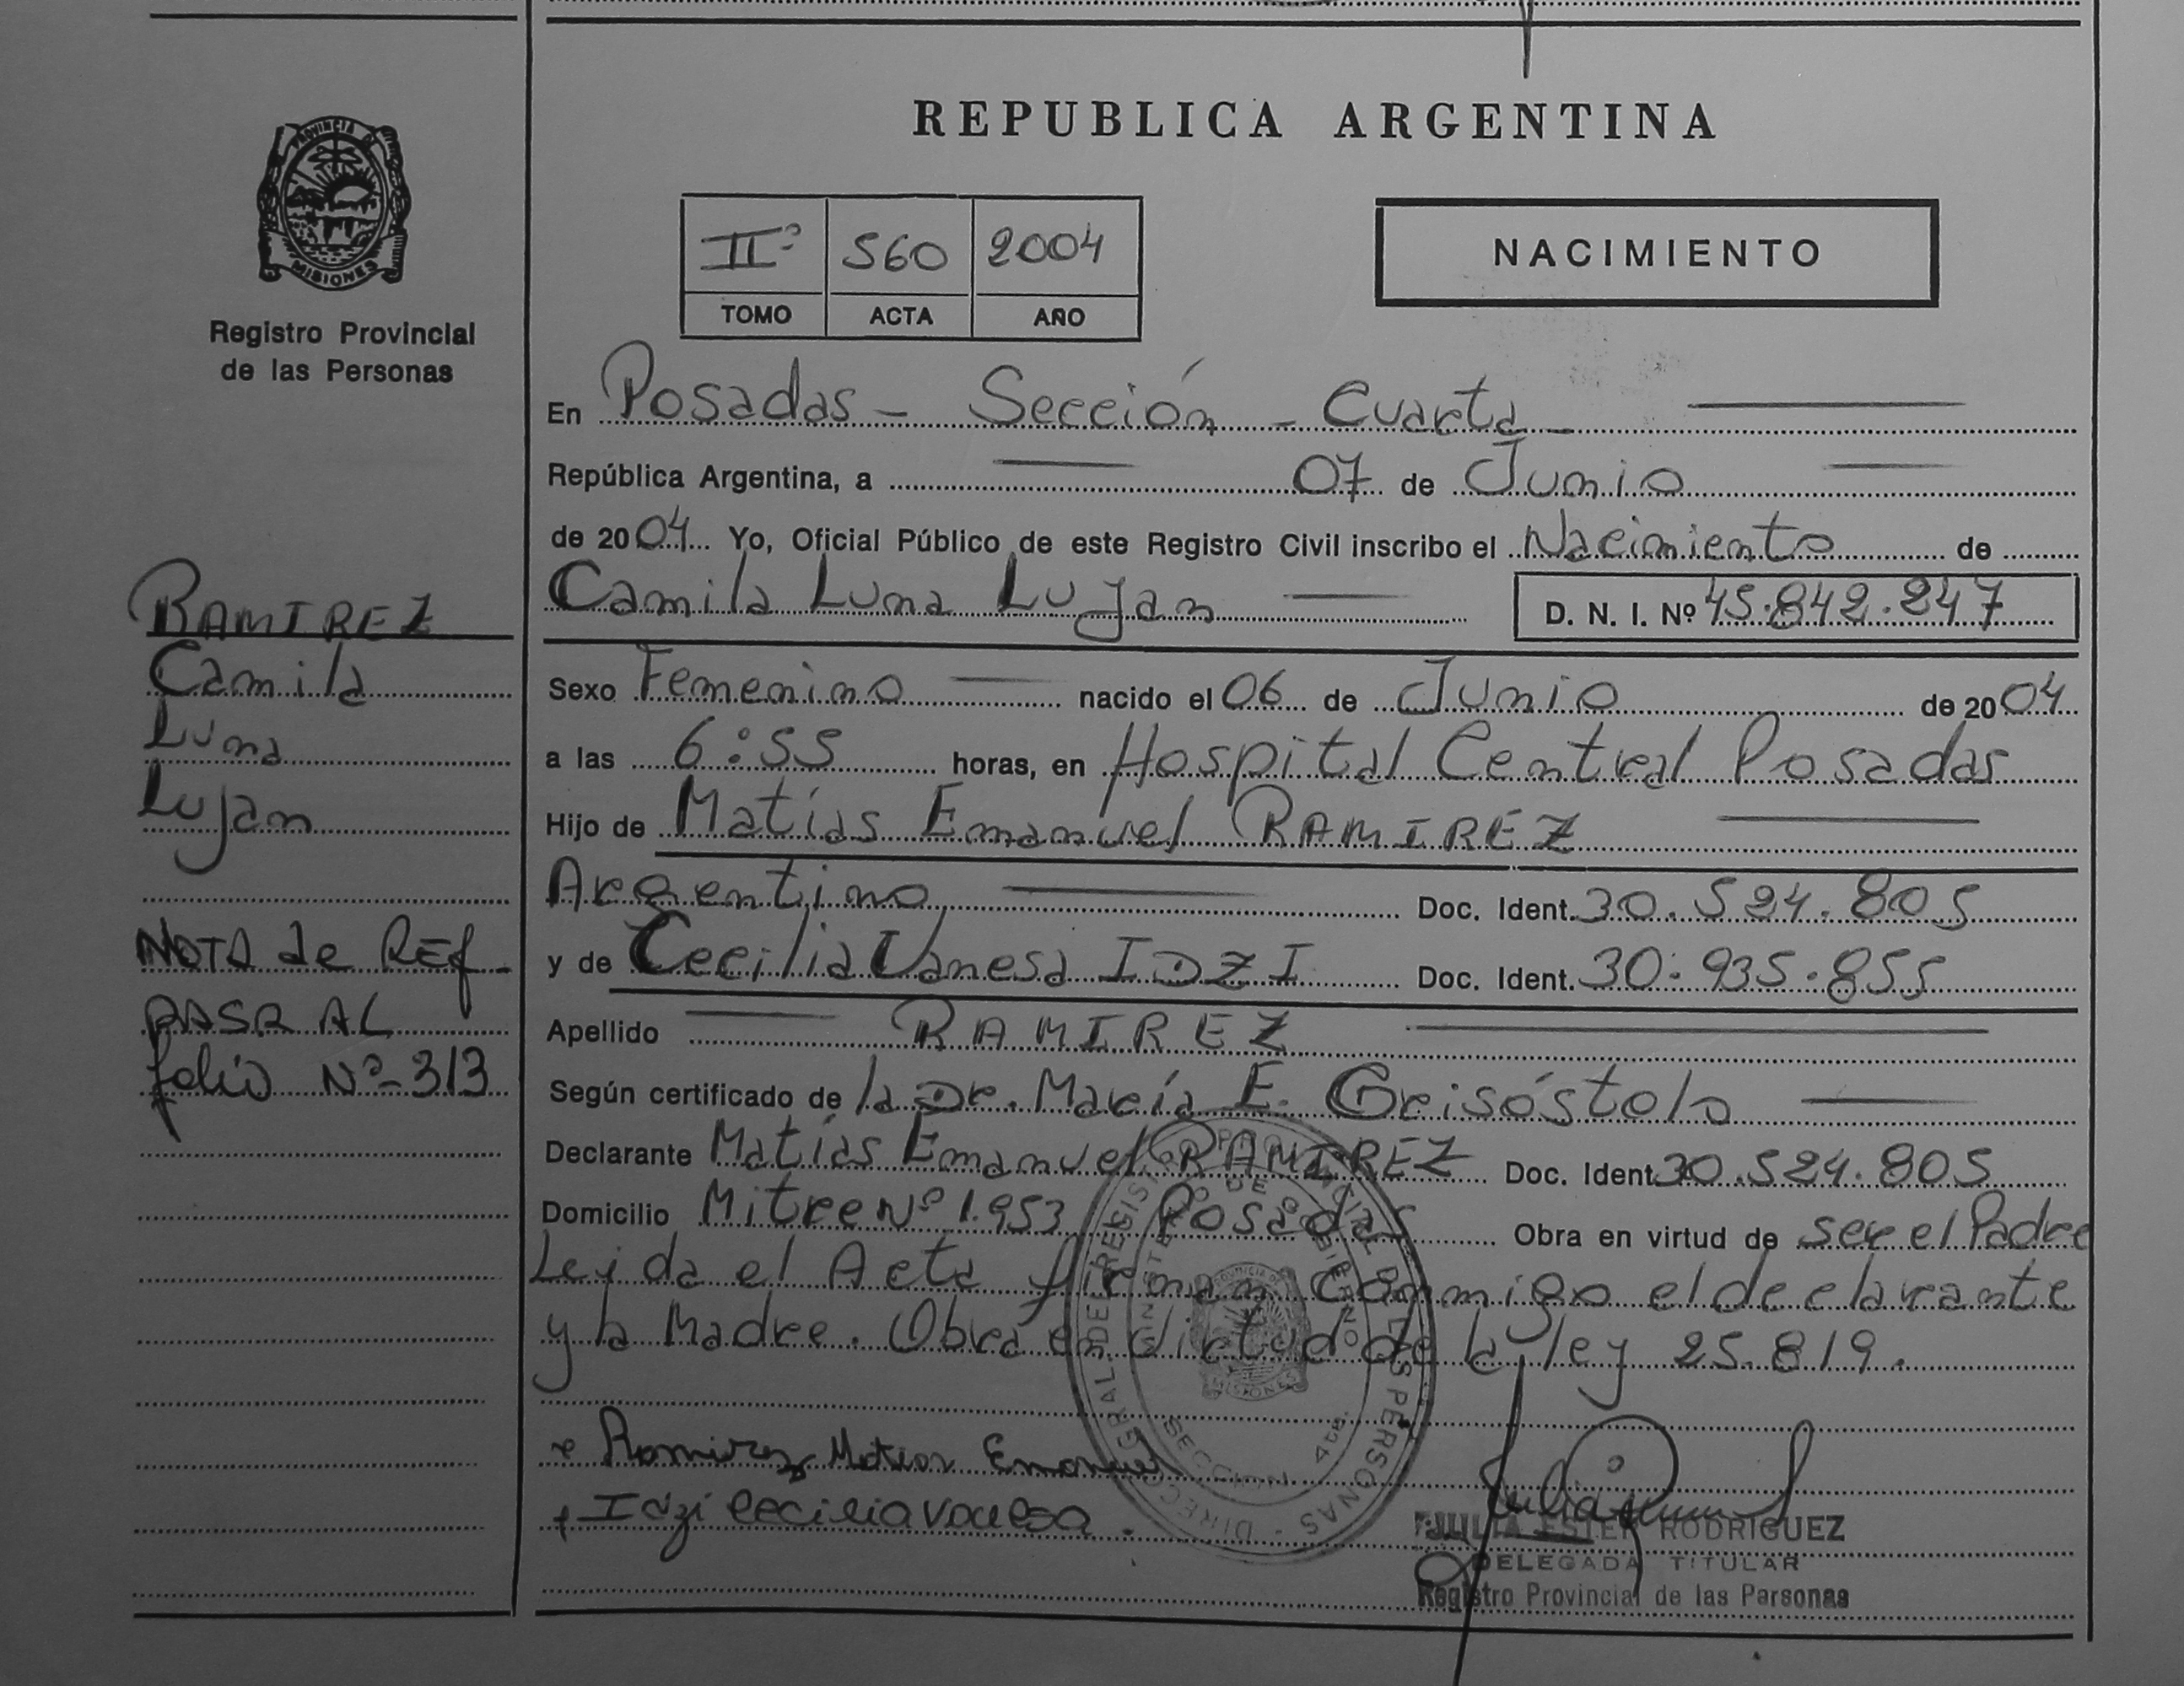 REPUBLICA ARGENTINA
PROVINCIA DE
MISIONES
Registro Provincial
de las Personas
IIº 560 2004
TOMO ACTA AÑO
NACIMIENTO
En Posadas - Sección - Cuarta -
República Argentina, a 07 de Junio
de 2004 Yo, Oficial Público de este Registro Civil inscribo el Nacimiento de
Camila Luna Lujan D. N. I. Nº 45.842.247
Sexo Femenino nacido el 06 de Junio de 2004
a las 6:55 horas, en Hospital Central Posadas
Hijo de Matías Emanuel RAMIREZ
Argentino Doc. Ident. 30.524.805
y de Cecilia Vanesa IDZI Doc. Ident. 30.935.855
Apellido RAMIREZ
Según certificado de la Dr. María E. Grisóstolo
Declarante Matías Emanuel RAMIREZ Doc. Ident 30.524.805
Domicilio Mitre Nº 1.953 Posadas Obra en virtud de ser el Padre
Leida el Acta firman conmigo el declarante
y la Madre. Obra en Virtud de la ley 25.819.
Ramirez Matias Emanuel
Idzi Cecilia Vanesa
JULIA ESTER RODRIGUEZ
DELEGADA TITULAR
Registro Provincial de las Personas
RAMIREZ
Camila
Luna
Lujan
NOTA de REf
PASA AL
folio Nº 313
DIRECC. GRAL. DEL REGIST. PROVINCIAL DE LAS PERSONAS
MINISTERIO DE GOBIERNO
SECCION 4ta.